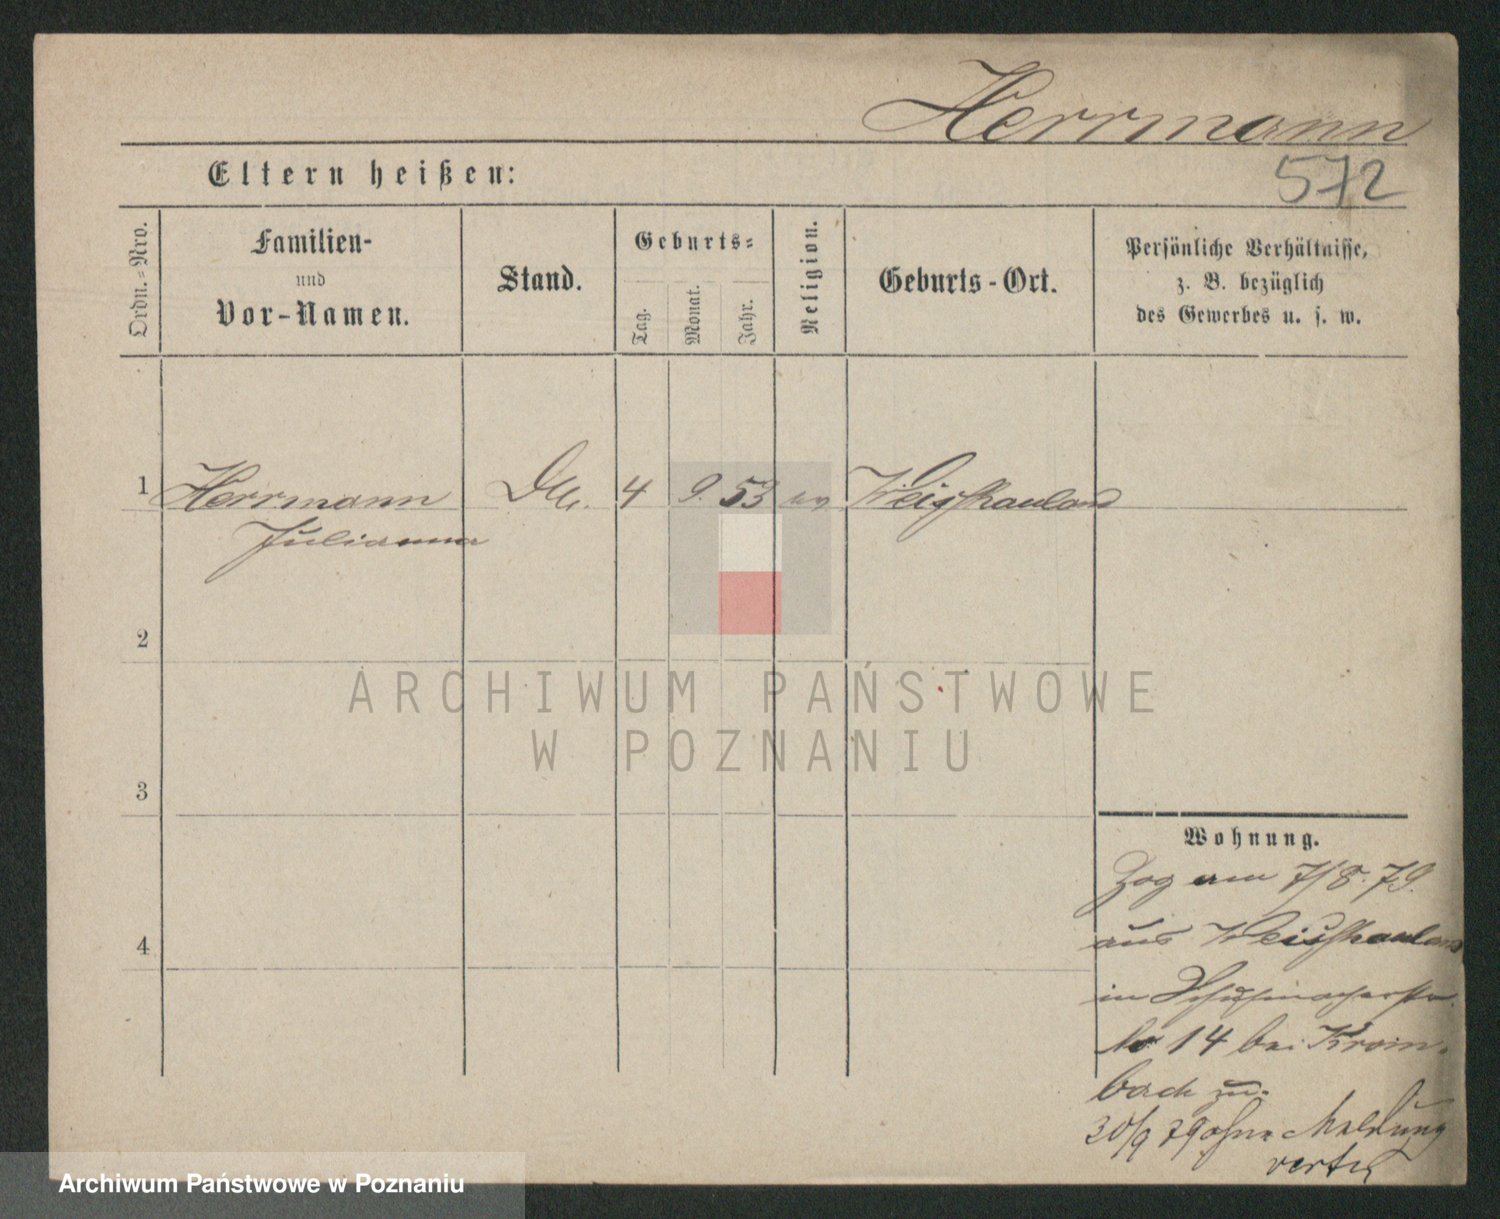 Herrmann
572
Eltern heißen:
Ordn.-Nro.
Familien-
und
Vor-Namen.
Stand.
Geburts-
Tag.
Monat.
Jahr.
Religion.
Geburts-Ort.
Persönliche Verhältnisse,
z. B. bezüglich
des Gewerbes u. s. w.
1 Herrmann 4 9. 53 ev Weishauland
Julianna
2
3
4
ARCHIWUM PAŃSTWOWE
W POZNANIU
Wohnung.
Zog am 7/8. 79.
aus Weishauland
in Schuhmacherstr.
No 14 bei Krom-
bach zu.
30/9 79 ohne Meldung
Archiwum Państwowe w Poznaniu